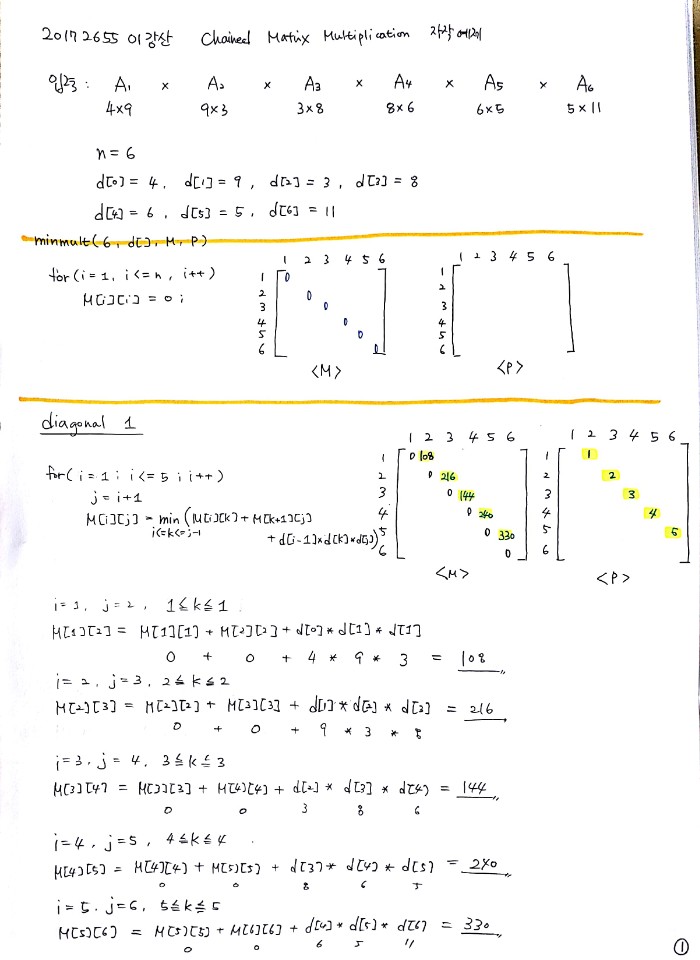 20172655 이강산 Chained Matrix Multiplication 자작 예제
입력 : A₁ × A₂ × A₃ × A₄ × A₅ × A₆
4×9 9×3 3×8 8×6 6×5 5×11
n = 6
d[0] = 4, d[1] = 9, d[2] = 3, d[3] = 8
d[4] = 6, d[5] = 5, d[6] = 11
minmult(6, d[], M, P)
for(i = 1, i <= n, i++)
M[i][i] = 0 ;
1 2 3 4 5 6
1 0
2 0
3 0
4 0
5 0
6 0
<M>
1 2 3 4 5 6
1
2
3
4
5
6
<P>
diagonal 1
for( i = 1 ; i <= 5 ; i++)
j = i+1
M[i][j] = min (M[i][k] + M[k+1][j]
i<=k<=j-1 + d[i-1]*d[k]*d[j])
1 2 3 4 5 6
1 0 108
2 0 216
3 0 144
4 0 240
5 0 330
6 0
<M>
1 2 3 4 5 6
1 1
2 2
3 3
4 4
5 5
6
<P>
i = 1, j = 2, 1≤k≤1
M[1][2] = M[1][1] + M[2][2] + d[0] * d[1] * d[1]
0 + 0 + 4 * 9 * 3 = 108
i = 2, j = 3, 2≤k≤2
M[2][3] = M[2][2] + M[3][3] + d[1] * d[2] * d[3] = 216
0 + 0 + 9 * 3 * 8
i = 3, j = 4, 3≤k≤3
M[3][4] = M[3][3] + M[4][4] + d[2] * d[3] * d[4] = 144
0 0 3 8 6
i = 4, j = 5, 4≤k≤4
M[4][5] = M[4][4] + M[5][5] + d[3] * d[4] * d[5] = 240
0 0 8 6 5
i = 5, j = 6, 5≤k≤5
M[5][6] = M[5][5] + M[6][6] + d[4] * d[5] * d[6] = 330
0 0 6 5 11
①